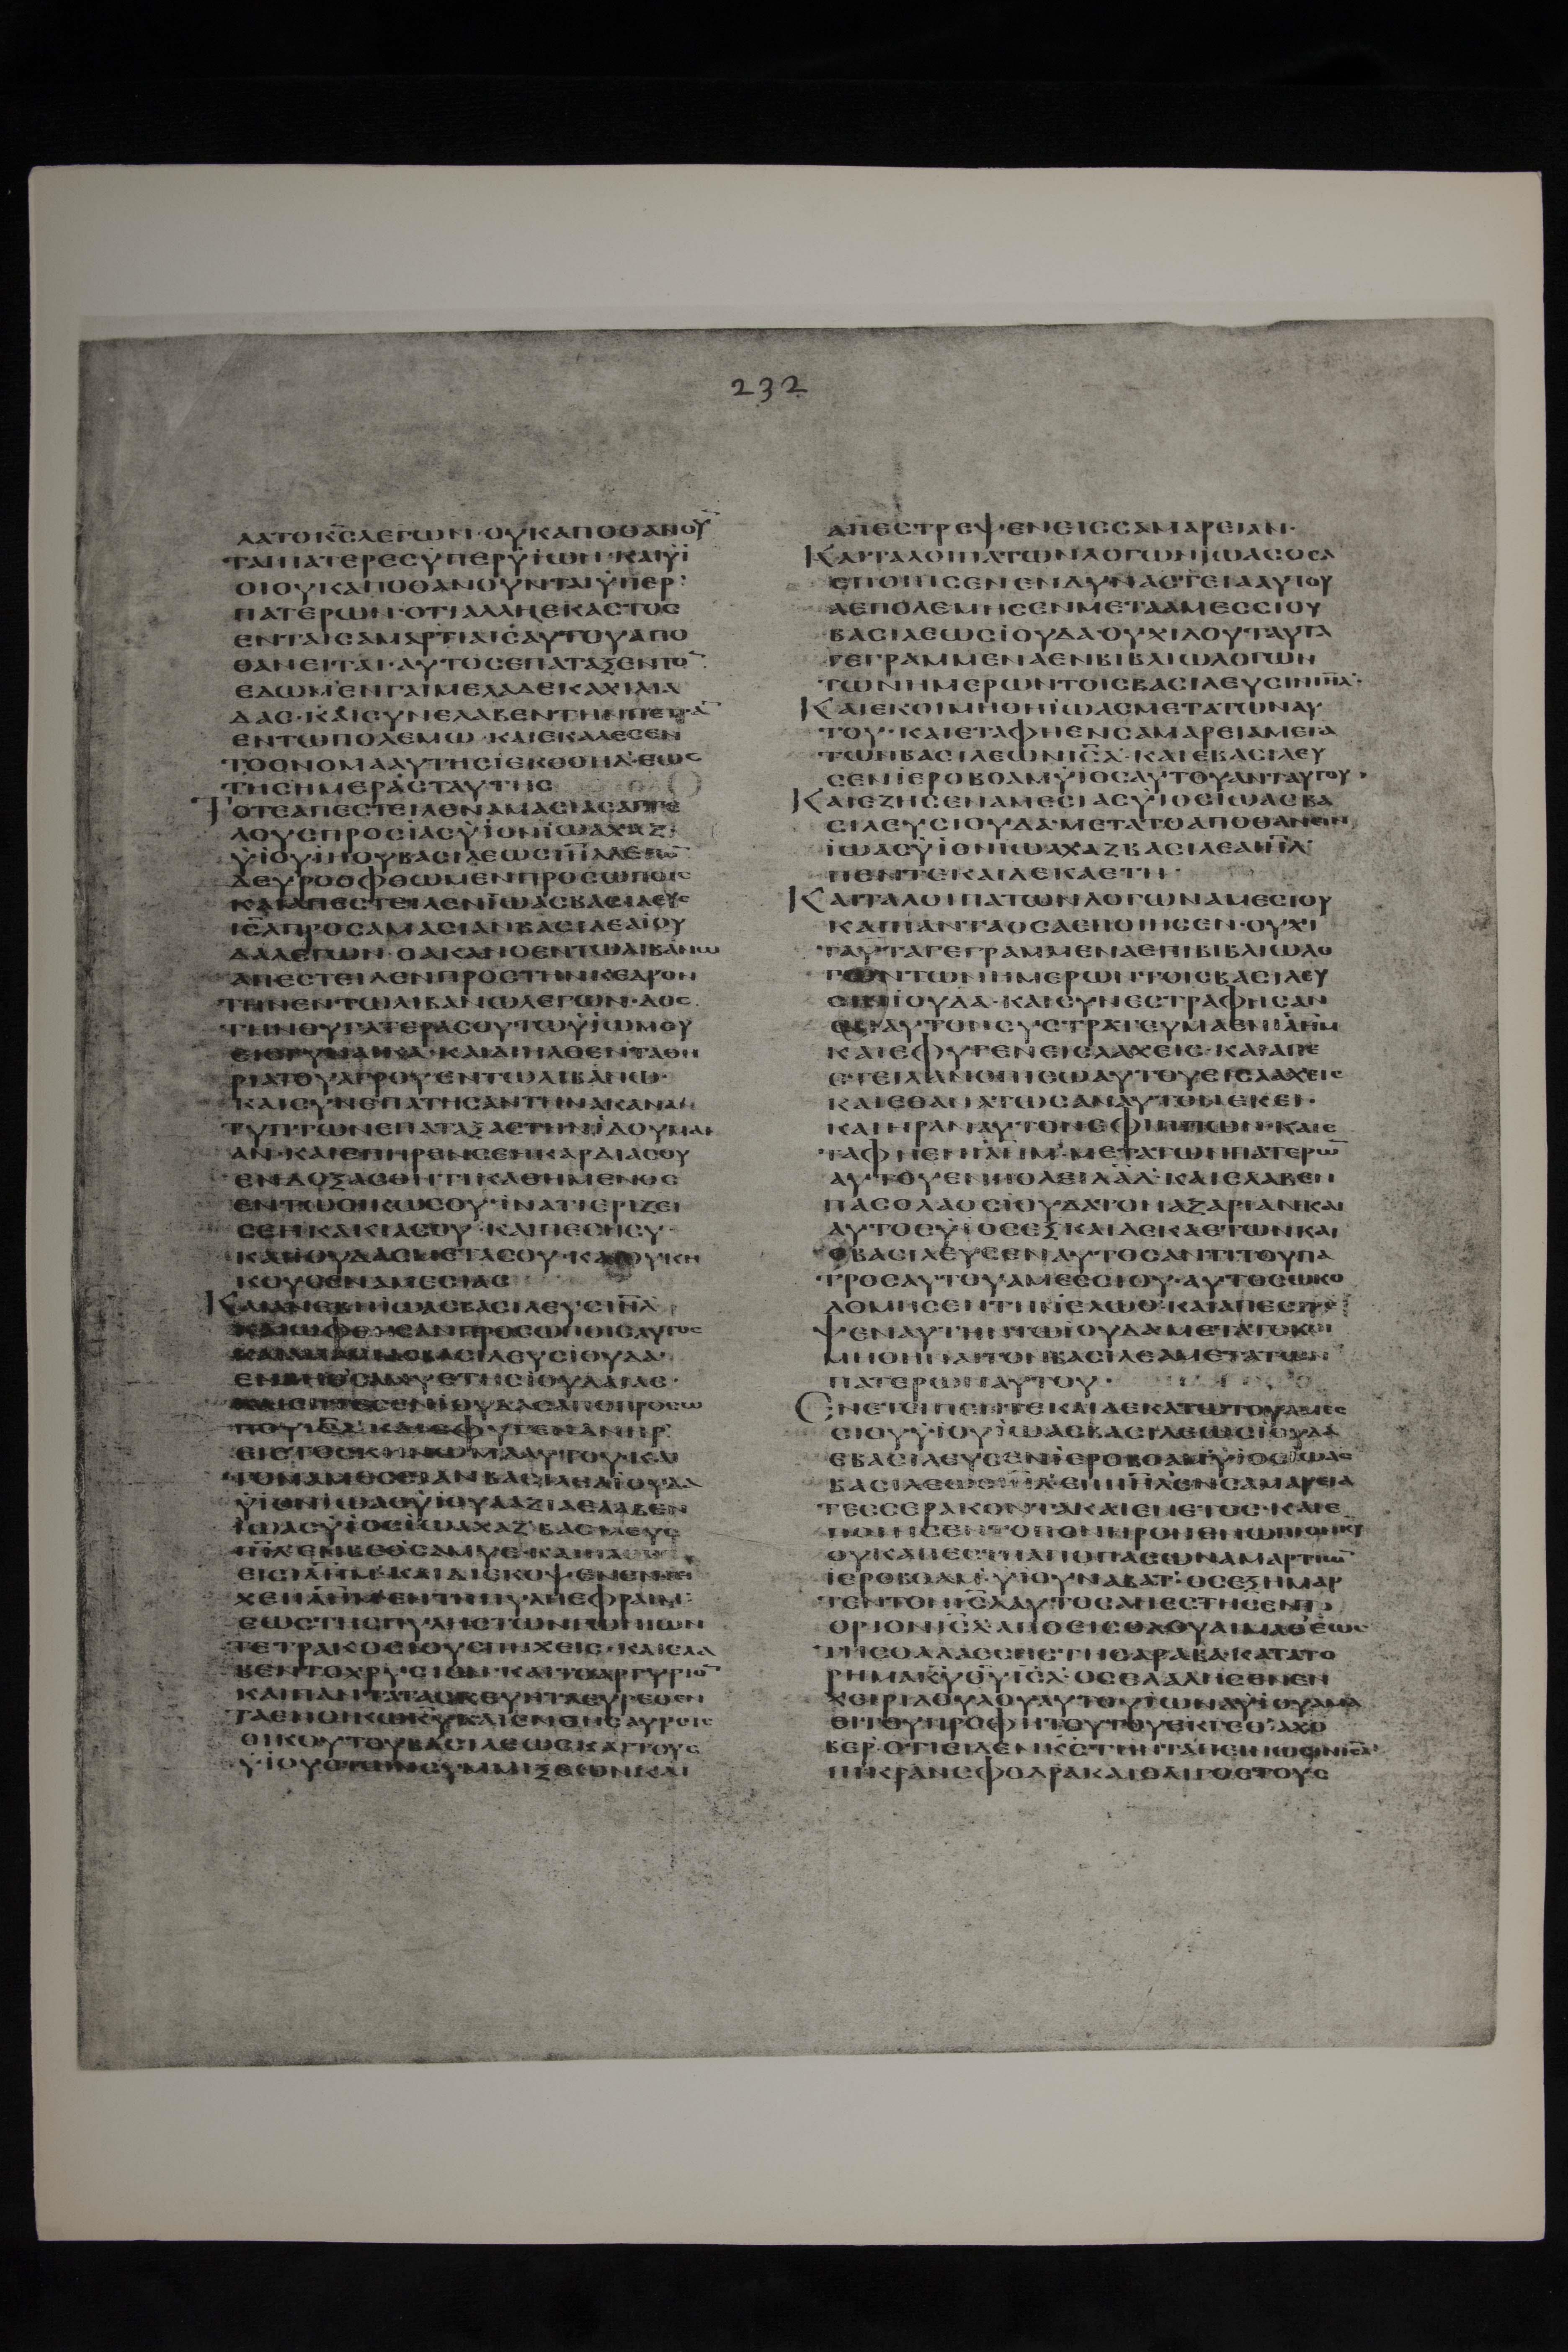 232
ΛΑΤΟΚ̅Σ̅ΛΕΓΩΝ·ΟΥΚΑΠΟΘΑΝΟΥ
ΤΑΙΠΑΤΕΡΕΣΫΠΕΡΫΪΩΝ·ΚΑΙΫΙ
ΟΙΟΥΚΑΠΟΘΑΝΟΥΝΤΑΙΫΠΕΡ
ΠΑΤΕΡΩΝ·ΟΤΙΑΛΛΗΕΚΑΣΤΟΣ
ΕΝΤΑΙΣΑΜΑΡΤΙΑΙΣΑΥΤΟΥΑΠΟ
ΘΑΝΕΙΤΑΙ·ΑΥΤΟΣΕΠΑΤΑΞΕΝΤΟ̅
ΕΔΩΜΕΝΓΑΙΜΕΛΑΔΕΚΑΧΙΛΙΑ
ΔΑΣ·ΚΑΙΣΥΝΕΛΑΒΕΝΤΗΝΠΕΤΡΑ̅
ΕΝΤΩΠΟΛΕΜΩ·ΚΑΙΕΚΑΛΕΣΕΝ
ΤΟΟΝΟΜΑΑΥΤΗΣΪΕΚΘΟΗΛ·ΕΩΣ
ΤΗΣΗΜΕΡΑΣΤΑΥΤΗΣ
ΤΟΤΕΑΠΕΣΤΕΙΛΕΝΑΜΑΣΙΑΣΑΓΓΕ
ΛΟΥΣΠΡΟΣΪΑΣΫΪΟΝΪΩΑΧΑΖ
ΫΪΟΥΪΗΟΥΒΑΣΙΛΕΩΣΙΗ̅Λ̅ΛΕΓΩ̅
ΔΕΥΡΟΟΦΘΩΜΕΝΠΡΟΣΩΠΟΙΣ
ΚΑΙΑΠΕΣΤΕΙΛΕΝΪΩΑΣΒΑΣΙΛΕΥΣ
ΙΣ̅Λ̅ΠΡΟΣΑΜΑΣΙΑΝΒΑΣΙΛΕΑΪΟΥ
ΔΑΛΕΓΩΝ·ΟΑΚΑΝΟΕΝΤΩΛΙΒΑΝΩ
ΑΠΕΣΤΕΙΛΕΝΠΡΟΣΤΗΝΚΕΔΡΟΝ
ΤΗΝΕΝΤΩΛΙΒΑΝΩΛΕΓΩΝ·ΔΟΣ
ΤΗΝΘΥΓΑΤΕΡΑΣΟΥΤΩΫΪΩΜΟΥ
ΕΙΣΓΥΝΑΙΚΑ·ΚΑΙΔΙΗΛΘΕΝΤΑΘΗ
ΡΙΑΤΟΥΑΓΡΟΥΕΝΤΩΛΙΒΑΝΩ·
ΚΑΙΣΥΝΕΠΑΤΗΣΑΝΤΗΝΑΚΑΝΑΝ
ΤΥΠΤΩΝΕΠΑΤΑΞΑΣΤΗΝΪΔΟΥΜΑΙ
ΑΝ·ΚΑΙΕΠΗΡΕΝΣΕΗΚΑΡΔΙΑΣΟΥ
ΕΝΔΟΞΑΣΘΗΤΙΚΑΘΗΜΕΝΟΣ
ΕΝΤΩΟΙΚΩΣΟΥ·ΪΝΑΤΙΕΡΙΖΕΙ
ΣΕΝΚΑΚΙΑΣΟΥ·ΚΑΙΠΕΣΗΣΥ
ΚΑΙΪΟΥΔΑΣΜΕΤΑΣΟΥ·ΚΑΙΟΥΚΗ
ΚΟΥΣΕΝΑΜΕΣΙΑΣ
ΚΑΙΑΝΕΒΗΪΩΑΣΒΑΣΙΛΕΥΣΙΗ̅Λ̅
ΚΑΙΩΦΘΗΣΑΝΠΡΟΣΩΠΟΙΣΑΥΤΟΣ
ΚΑΙΑΜΑΣΙΑΣΒΑΣΙΛΕΥΣΪΟΥΔΑ·
ΕΝΒΗΘΣΑΜΥΣΤΗΣΪΟΥΔΑΙΑΣ·
ΚΑΙΕΠΤΕΣΕΝΪΟΥΔΑΣΑΠΟΠΡΟΣΩ
ΠΟΥΙΣ̅Λ̅·ΚΑΙΕΦΥΓΕΝΑΝΗΡ
ΕΙΣΤΟΣΚΗΝΩΜΑΑΥΤΟΥ·ΚΑΙ
ΤΟΝΑΜΕΣΣΙΑΝΒΑΣΙΛΕΑΪΟΥΔΑ
ΫΪΟΝΪΩΑΣΫΪΟΥΑΑΖΙΑΕΛΑΒΕΝ
ΪΩΑΣΫΪΟΣΪΩΑΧΑΖΒΑΣΙΛΕΥΣ
ΙΗ̅Λ̅·ΕΝΒΕΘΣΑΜΥΣ·ΚΑΙΗΛΘΕΝ
ΕΙΣΪΛ̅Η̅Μ̅·ΚΑΙΔΙΕΚΟΨΕΝΕΝΤΕΙ
ΧΕΙΪΛ̅Η̅Μ̅ΕΝΤΗΠΥΛΗΕΦΡΑΙΜ
ΕΩΣΤΗΣΠΥΛΗΣΤΩΝΓΩΝΙΩΝ
ΤΕΤΡΑΚΟΣΙΟΥΣΠΗΧΕΙΣ·ΚΑΙΕΛΑ
ΒΕΝΤΟΧΡΥΣΙΟΝ·ΚΑΙΤΟΑΡΓΥΡΙΟ̅
ΚΑΙΠΑΝΤΑΤΑΣΚΕΥΗΤΑΕΥΡΕΘΕΝ
ΤΑΕΝΟΙΚΩΚ̅Υ̅ΚΑΙΕΝΘΗΣΑΥΡΟΙΣ
ΟΙΚΟΥΤΟΥΒΑΣΙΛΕΩΣΚΑΙΤΟΥΣ
ΫΪΟΥΣΤΩΝΣΥΜΜΙΞΕΩΝΚΑΙ
ΑΠΕΣΤΡΕΨΕΝΕΙΣΣΑΜΑΡΕΙΑΝ·
ΚΑΙΤΑΛΟΙΠΑΤΩΝΛΟΓΩΝΪΩΑΣΟΣΑ
ΕΠΟΙΗΣΕΝΕΝΔΥΝΑΣΤΕΙΑΑΥΤΟΥ
ΑΕΠΟΛΕΜΗΣΕΝΜΕΤΑΑΜΕΣΣΙΟΥ
ΒΑΣΙΛΕΩΣΪΟΥΔΑ·ΟΥΧΙΔΟΥΤΑΥΤΑ
ΓΕΓΡΑΜΜΕΝΑΕΝΒΙΒΛΙΩΛΟΓΩΝ
ΤΩΝΗΜΕΡΩΝΤΟΙΣΒΑΣΙΛΕΥΣΙΝΙΗ̅Λ̅
ΚΑΙΕΚΟΙΜΗΘΗΪΩΑΣΜΕΤΑΠΩΝΑΥ
ΤΟΥ·ΚΑΙΕΤΑΦΗΕΝΣΑΜΑΡΕΙΑΜΕΤΑ
ΤΩΝΒΑΣΙΛΕΩΝΙΣ̅Λ̅·ΚΑΙΕΒΑΣΙΛΕΥ
ΣΕΝΪΕΡΟΒΟΑΜΫΪΟΣΑΥΤΟΥΑΝΤΑΥΤΟΥ·
ΚΑΙΕΖΗΣΕΝΑΜΕΣΙΑΣΫΪΟΣΪΩΑΣΒΑ
ΣΙΛΕΥΣΙΟΥΔΑ·ΜΕΤΑΤΟΑΠΟΘΑΝΕΙΝ
ΪΩΑΣΫΪΟΝΪΩΑΧΑΖΒΑΣΙΛΕΑΙΗ̅Λ̅
ΠΕΝΤΕΚΑΙΔΕΚΑΕΤΗ·
ΚΑΙΤΑΛΟΙΠΑΤΩΝΛΟΓΩΝΑΜΕΣΙΟΥ
ΚΑΙΠΑΝΤΑΟΣΑΕΠΟΙΗΣΕΝ·ΟΥΧΙ
ΤΑΥΤΑΓΕΓΡΑΜΜΕΝΑΕΠΙΒΙΒΛΙΩΛΟ
ΓΩΝΤΩΝΗΜΕΡΩΝΤΟΙΣΒΑΣΙΛΕΥ
ΣΙΝΪΟΥΔΑ·ΚΑΙΣΥΝΕΣΤΡΑΦΗΣΑΝ
ΕΠΑΥΤΟΝΣΥΣΤΡΑΓΕΥΜΑΕΝΪΛ̅Η̅Μ̅
ΚΑΙΕΦΥΓΕΝΕΙΣΛΑΧΕΙΣ·ΚΑΙΑΠΕ
ΣΤΕΙΛΑΝΟΠΙΣΩΑΥΤΟΥΕΙΣΛΑΧΕΙΣ
ΚΑΙΕΘΑΝΑΤΩΣΑΝΑΥΤΟΝΕΚΕΙ·
ΚΑΙΗΡΑΝΑΥΤΟΝΕΦΙΠΠΩΝ·ΚΑΙΕ
ΤΑΦΗΕΝΪΛ̅Η̅Μ̅·ΜΕΤΑΤΩΝΠΑΤΕΡΩ̅
ΑΥΤΟΥΕΝΠΟΛΕΙΔΑ̅Δ̅·ΚΑΙΕΛΑΒΕΝ
ΠΑΣΟΛΑΟΣΪΟΥΔΑΤΟΝΑΖΑΡΙΑΝΚΑΙ
ΑΥΤΟΣΫΪΟΣΕΞΚΑΙΔΕΚΑΕΤΩΝΚΑΙ
ΕΒΑΣΙΛΕΥΣΕΝΑΥΤΟΣΑΝΤΙΤΟΥΠΑ
ΤΡΟΣΑΥΤΟΥΑΜΕΣΣΙΟΥ·ΑΥΤΟΣΩΚΟ
ΔΟΜΗΣΕΝΤΗΝΕΛΩΘ·ΚΑΙΑΠΕΣΤΡΕ
ΨΕΝΑΥΤΗΝΤΩΪΟΥΔΑΜΕΤΑΤΟΚΟΙ
ΜΗΘΗΝΑΙΤΟΝΒΑΣΙΛΕΑΜΕΤΑΤΩΝ
ΠΑΤΕΡΩΝΑΥΤΟΥ·
ΕΝΕΤΕΙΠΕΝΤΕΚΑΙΔΕΚΑΤΩΤΟΥΑΜΕΣ
ΣΙΟΥΫΪΟΥΪΩΑΣΒΑΣΙΛΕΩΣΪΟΥΔΑ
ΕΒΑΣΙΛΕΥΣΕΝΪΕΡΟΒΟΑΜΫΪΟΣΪΩΑΣ
ΒΑΣΙΛΕΩΣΙΗ̅Λ̅·ΕΠΙΙΗ̅Λ̅ΕΝΣΑΜΑΡΕΙΑ
ΤΕΣΣΕΡΑΚΟΝΤΑΚΑΙΕΝΕΤΟΣ·ΚΑΙΕ
ΠΟΙΗΣΕΝΤΟΠΟΝΗΡΟΝΕΝΩΠΙΟΝΚ̅Υ̅
ΟΥΚΑΠΕΣΤΗΑΠΟΠΑΣΩΝΑΜΑΡΤΙΩ̅
ΪΕΡΟΒΟΑΜ·ΫΪΟΥΝΑΒΑΤ·ΟΣΕΞΗΜΑΡ
ΤΕΝΤΟΝΙΣ̅Λ̅ΑΥΤΟΣΑΠΕΣΤΗΣΕΝΤΟ
ΟΡΙΟΝΙΣ̅Λ̅ΑΠΟΕΙΣΟΔΟΥΑΙΜΑΘΕΩΣ
ΤΗΣΘΑΛΑΣΣΗΣΤΗΣΑΡΑΒΑ·ΚΑΤΑΤΟ
ΡΗΜΑΚ̅Υ̅Θ̅Υ̅ΙΣ̅Λ̅·ΟΣΕΛΑΛΗΣΕΝΕΝ
ΧΕΙΡΙΔΟΥΛΟΥΑΥΤΟΥΪΩΝΑΫΪΟΥΑΜΑ
ΘΙΤΟΥΠΡΟΦΗΤΟΥΤΟΥΕΚΓΕΘΑΧΟ
ΒΕΡ·ΟΤΙΕΙΔΕΝΚ̅Σ̅ΤΗΝΤΑΠΕΙΝΩΣΙΝΙΣ̅Λ̅
ΠΙΚΡΑΝΣΦΟΔΡΑΚΑΙΟΛΙΓΟΣΤΟΥΣ